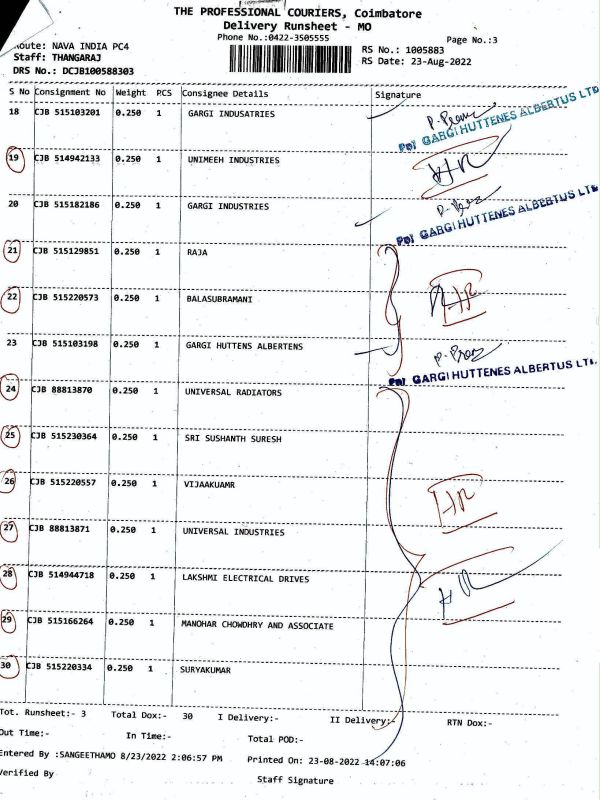 THE PROFESSIONAL COURIERS, Coimbatore
Delivery Runsheet - MO
Phone No.:0422-3505555
Page No.:3
Route: NAVA INDIA PC4
RS No.: 1005883
Staff: THANGARAJ
RS Date: 23-Aug-2022
DRS No.: DCJB100588303
S No Consignment No Weight PCS Consignee Details Signature
18 CJB 515103201 0.250 1 GARGI INDUSATRIES
For GARGI HUTTENES ALBERTUS LTD
19 CJB 514942133 0.250 1 UNIMEEH INDUSTRIES
20 CJB 515182186 0.250 1 GARGI INDUSTRIES
For GARGI HUTTENES ALBERTUS LTD
21 CJB 515129851 0.250 1 RAJA
22 CJB 515220573 0.250 1 BALASUBRAMANI
23 CJB 515103198 0.250 1 GARGI HUTTENS ALBERTENS
For GARGI HUTTENES ALBERTUS LTD.
24 CJB 88813870 0.250 1 UNIVERSAL RADIATORS
25 CJB 515230364 0.250 1 SRI SUSHANTH SURESH
26 CJB 515220557 0.250 1 VIJAAKUAMR
27 CJB 88813871 0.250 1 UNIVERSAL INDUSTRIES
28 CJB 514944718 0.250 1 LAKSHMI ELECTRICAL DRIVES
29 CJB 515166264 0.250 1 MANOHAR CHOWDHRY AND ASSOCIATE
30 CJB 515220334 0.250 1 SURYAKUMAR
Tot. Runsheet:- 3 Total Dox:- 30 I Delivery:- II Delivery:- RTN Dox:-
Out Time:- In Time:- Total POD:-
Entered By :SANGEETHAMO 8/23/2022 2:06:57 PM Printed On: 23-08-2022 14:07:06
Verified By Staff Signature